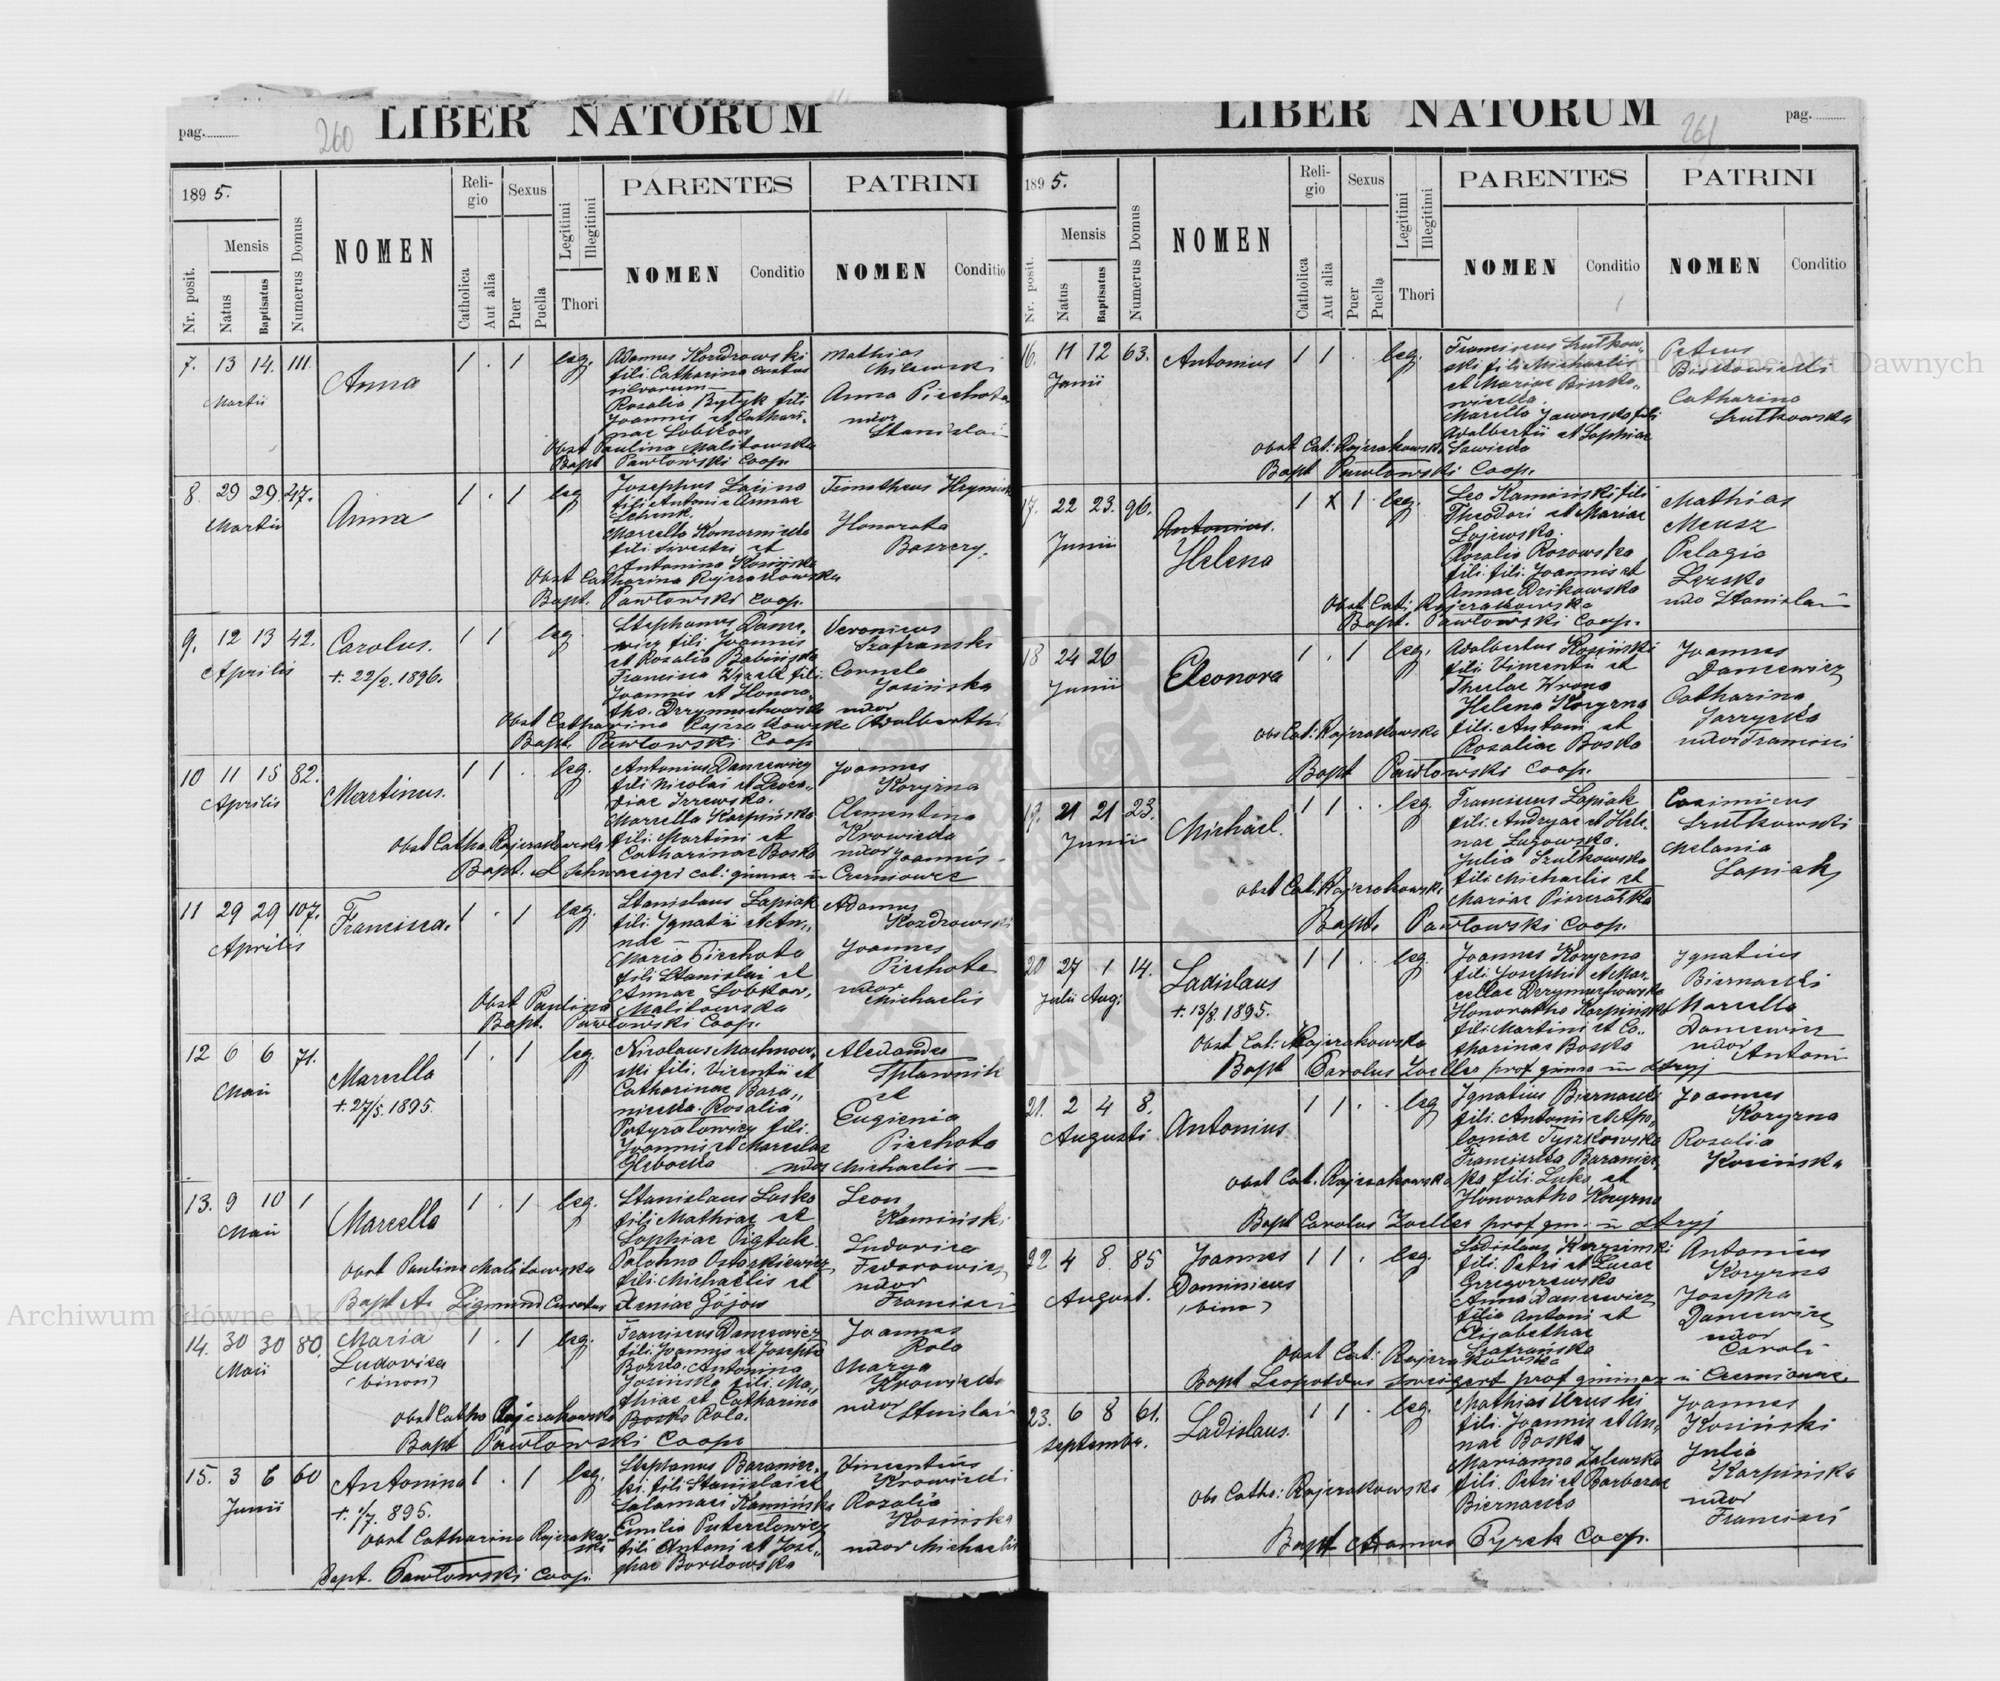 LIBER NATORUM
pag.
260
1895.
Mensis
Nr. posit.
Natus
Baptisatus
Numerus Domus
NOMEN
Religio
Catholica
Aut alia
Sexus
Puer
Puella
Legitimi
Illegitimi
Thori
PARENTES
NOMEN
Conditio
PATRINI
NOMEN
Conditio
7. 13 14. 111.
Martii
Anna
1 . 1 leg.
Adamus Kozdrowski
fili Catharina custos
silvarum
Rosalia Bytyk fili
Joannis et Cathari-
nae Lobkow
Mathias
Milewski
Anna Piechota
uxor
Stanislai
Obst Paulina Malitowska
Bapt Pawłowski Coop.
8. 29 29. 47.
Martii
Anna
1 . 1 leg
Josephus
fili Antoni et Annae
Marcella Komarnicka
fili Sivestri et
Antonina Kosińska
Timotheus
Honorata
Obst Catharina Rajczakowska
Bapt. Pawłowski Coop.
9. 12 13 42.
Aprilis
Carolus.
+. 22/2. 1896.
1 1 leg
Stephanus Dance-
wicz fili Joannis
et Rosalia Babińska
Francisca fili.
Joannis et Honora-
tha.
Veronicus
Szafranski
Cornela
Josińska
uxor
Adalberthi
Obst Catharina Rajczakowska
Bapt. Pawłowski Coop
10 11 15 82.
Aprilis
Martinus.
1 1 . leg.
Antonius Dancewicz
fili Nicolai et Leoca-
diae
Marcella Karpińska
fili. Martini et
Catharinae Boska
Joannes
Koryzna
Clementina
Krowicka
uxor Joannis
Obst Catha. Rajczakowska
Bapt. et Schwaeiger cat: gimnar in Czerniowce
11 29 29 107.
Aprilis
Francisca.
1 . 1 leg.
Stanislaus Lapiak
fili. Ignatii et An-
nae
Maria Piechota
fili Stanislai et
Annae Lobkow,
Adamus
Kozdrowski
Joannes
Piechota
uxor
Michaelis
Obst Paulina Malitowska
Bapt. Pawłowski Coop.
12 6 6 71.
Maii
Marcella
+. 27/5. 1895.
1 . 1 leg.
Nicolaus Machnow-
ski fili. Vicentii et
Catharinae Bara-
niecka. Rosalia
Potyralowicz fili.
Joannis et Marcelae
Głebocka
Alexander
Spławnik
et
Eugienia
Piechota
uxor Michaelis
13. 9 10 1
Maii
Marcella
1 . 1 leg.
Stanislaus Lasko
fili Mathiae et
Sophiae Pigtak
fili. Michaelis et
Xeniae
Leon
Kamiński
Ludovica
Fedorowicz
uxor
Francisci
Obst Paulina Malitowska
Bapt A. Zigmund Curatus
14. 30 30 80.
Maii
Maria
Ludovica
(binon)
1 . 1 leg.
Franciscus Dancewicz
fili. Joannis et Josepha
Boska. Antonina
Josińska fili. Ma-
thiae et Catharina
Boska Rola.
Joannes
Rola
Marya
Krowicka
uxor
Stanislai
Obst Catha Rajczakowska
Bapt Pawłowski Coop
15. 3 6 60
Junii
Antonina
+. 1/7. 895.
1 . 1 leg.
Stephanus Baraniec-
ki. fili Stanislai et
Salamaei Kamińska
Emilia Puterelowicz
fili Antoni et Jose-
phae Borkowska
Vincentius
Krowicki
Rosalia
Kosińska
uxor Michaelis
Obst Catharina Rajczakow-
ska
Bapt. Pawłowski Coop.
LIBER NATORUM
261
pag.
1895.
Mensis
Nr. posit.
Natus
Baptisatus
Numerus Domus
NOMEN
Religio
Catholica
Aut alia
Sexus
Puer
Puella
Legitimi
Illegitimi
Thori
PARENTES
NOMEN
Conditio
PATRINI
NOMEN
Conditio
16. 11 12 63.
Junii
Antonius
1 1 . leg.
Franciscus Szutkow-
ski fili Michaelis
et Mariae Binko-
wiecka.
Marcella Jaworska fili
Adalbertii et Sophiae
Sawicka
Petrus
Catharina
Szutkowska
Obst Cat: Rajczakowska
Bapt Pawłowski Coop.
17. 22 23. 96.
Junii
Antonius.
Helena
1 x 1 leg.
Leo Kaminski fili
Theodori et Mariae
Łojewska.
Rosalia Rozowska
fili. fili. Joannis et
Annae Dzikowska
Mathias
Meusz
Pelagia
Lersko
uxo Stanislai
Obst Cat: Rajczakowska
Bapt. Pawłowski Coop.
18 24 26
Junii
Eleonora
1 . 1 leg.
Adalbertus Kosiński
fili Vincentii et
Theclae Wrona
Helena Koryzna
fili. Antoni et
Rosaliae Boska
Joannes
Dancewicz
Catharina
Jarzycka
uxor Francisci
obs Cat: Rajczakowska
Bapt Pawłowski Coop.
19. 21 21 23.
Junii
Michael.
1 1 . . leg.
Franciscus Lapiak
fili. Andryae et Hele-
nae Lugowska.
Julia Szulkowska
fili Michaelis et
Mariae
Casimirus
Szutkowski
Melania
Lapiak
obst Cat: Rajczakowska
Bapt. Pawłowski Coop.
20 27 1 14.
Julii Aug:
Ladislaus
+. 13/8. 1895.
1 1 . leg.
Joannes Koryzna
fili Josephi et Mar-
cellae
Honoratha Karpinska
fili Martini et Ca-
tharinae Boska
Ignatius
Biernacki
Marcella
Dancewicz
uxor
Antoni
Obst Cat: Rajczakowska
Bapt Carolus Zoeller prof gimn in Stryj
21. 2 4 8.
Augusti
Antonius
1 1 . . leg
Ignatius Biernacki
fili. Antonii et Apo-
loniae Tyszkowska
Franciszka Baraniec-
ka fili. Luka et
Honoratha Koryzna
Joannes
Koryzna
Rosalia
Kosińska
obst Cat. Rajczakowska
Bapt Carolus Zoeller prof gm. in Stryj
22 4 8. 85
August.
Joannes
Dominicus
(bino)
1 1 . leg.
Ladislaus
fili. Petri et Lucae
Grzegorzewska
Anna Dancewicz
filia Antoni et
Elisabethae
Szafrańska
Antonius
Koryzna
Josepha
Dancewicz
uxor
Caroli
Obst Cat: Rajczakowska
Bapt Leopoldus Sweigert prof gimnar in Czernionce
23. 6 8 61.
Septembr.
Ladislaus.
1 1 . leg.
Mathias Uruski
fili. Joannis et An-
nae Boska
Marianna Zalewska
fili. Petri et Barbarae
Biernacka
Joannes
Kosiński
Julia
Karpińska
uxor
Francisci
Obs Catha: Rajczakowska
Bapt Adamus Pyrek Coop.
Archiwum Główne Akt Dawnych
Archiwum Główne Akt Dawnych